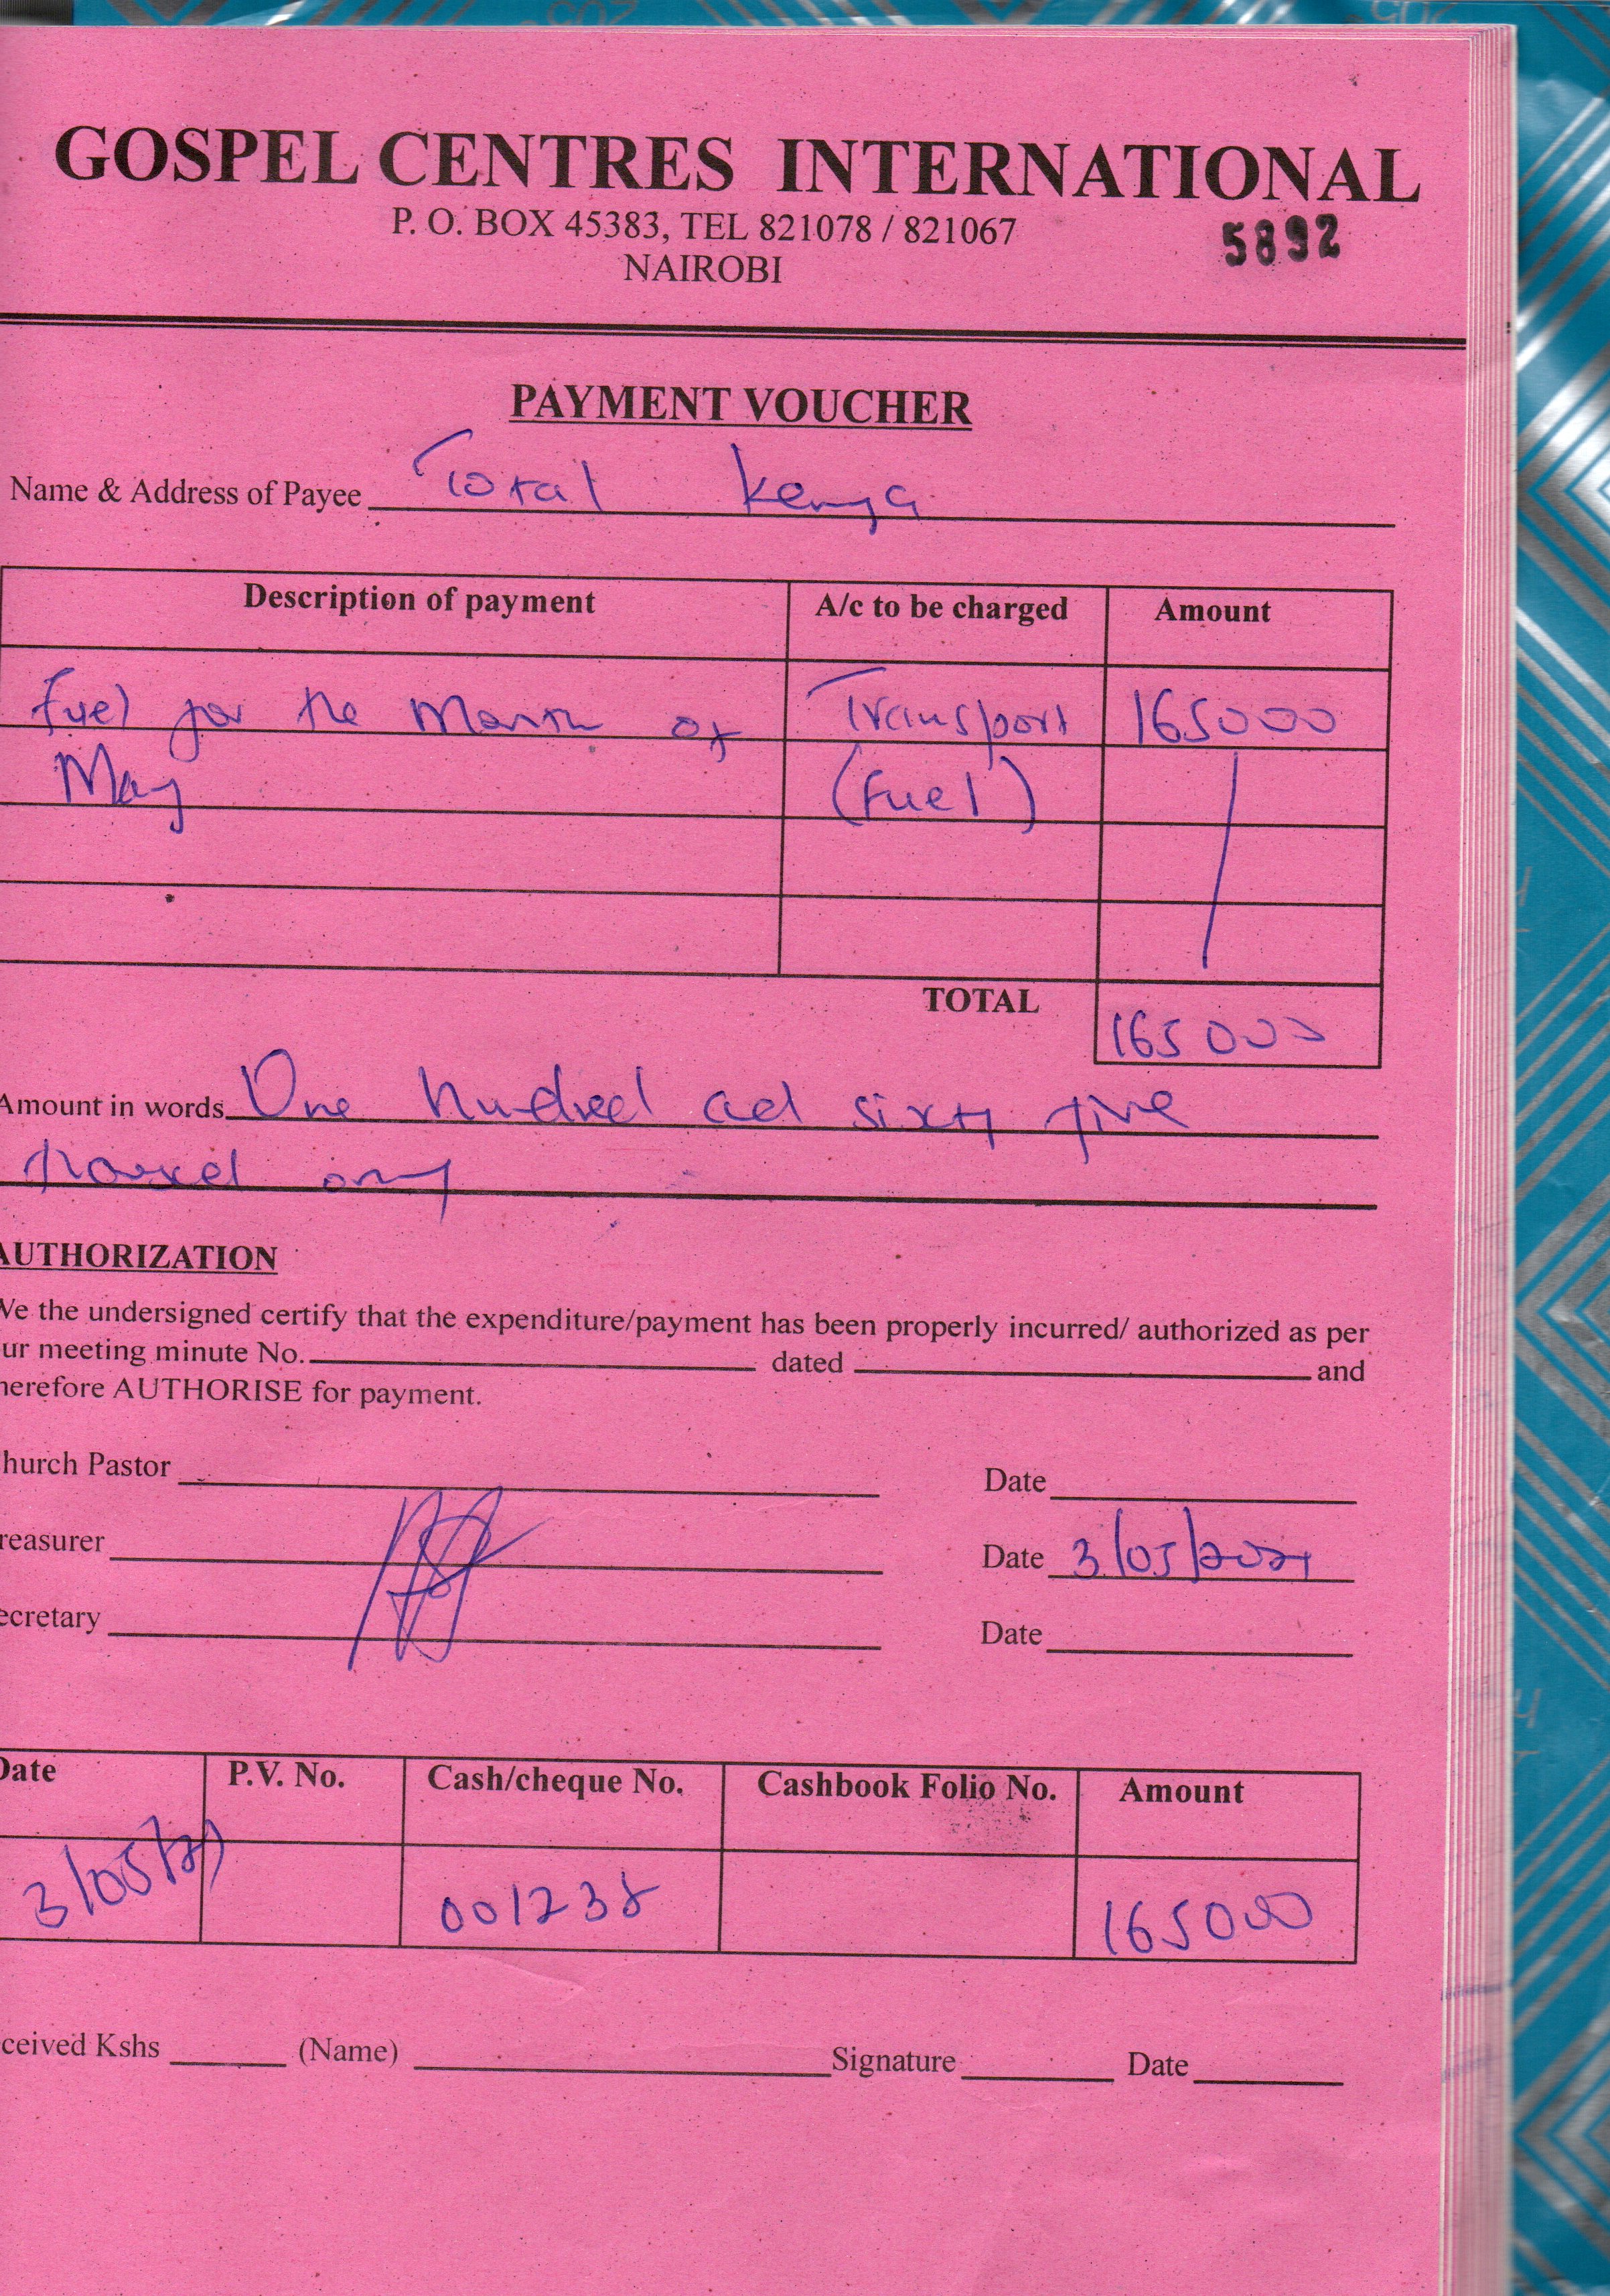 GOSPEL CENTRES INTERNATIONAL
P. O. BOX 45383, TEL 821078 / 821067
5892
NAIROBI
PAYMENT VOUCHER
Name & Address of Payee Total Kenya
Description of payment A/c to be charged Amount
Fuel for the Month of Transport 165000
May (Fuel)
TOTAL
165000
Amount in words One hundred ad sixty five
thousand only
AUTHORIZATION
We the undersigned certify that the expenditure/payment has been properly incurred/ authorized as per
ur meeting minute No. dated and
herefore AUTHORISE for payment.
hurch Pastor Date
reasurer Date 3/05/2021
ecretary Date
Date P.V. No. Cash/cheque No. Cashbook Folio No. Amount
3/05/21 001238 165000
ceived Kshs (Name) Signature Date